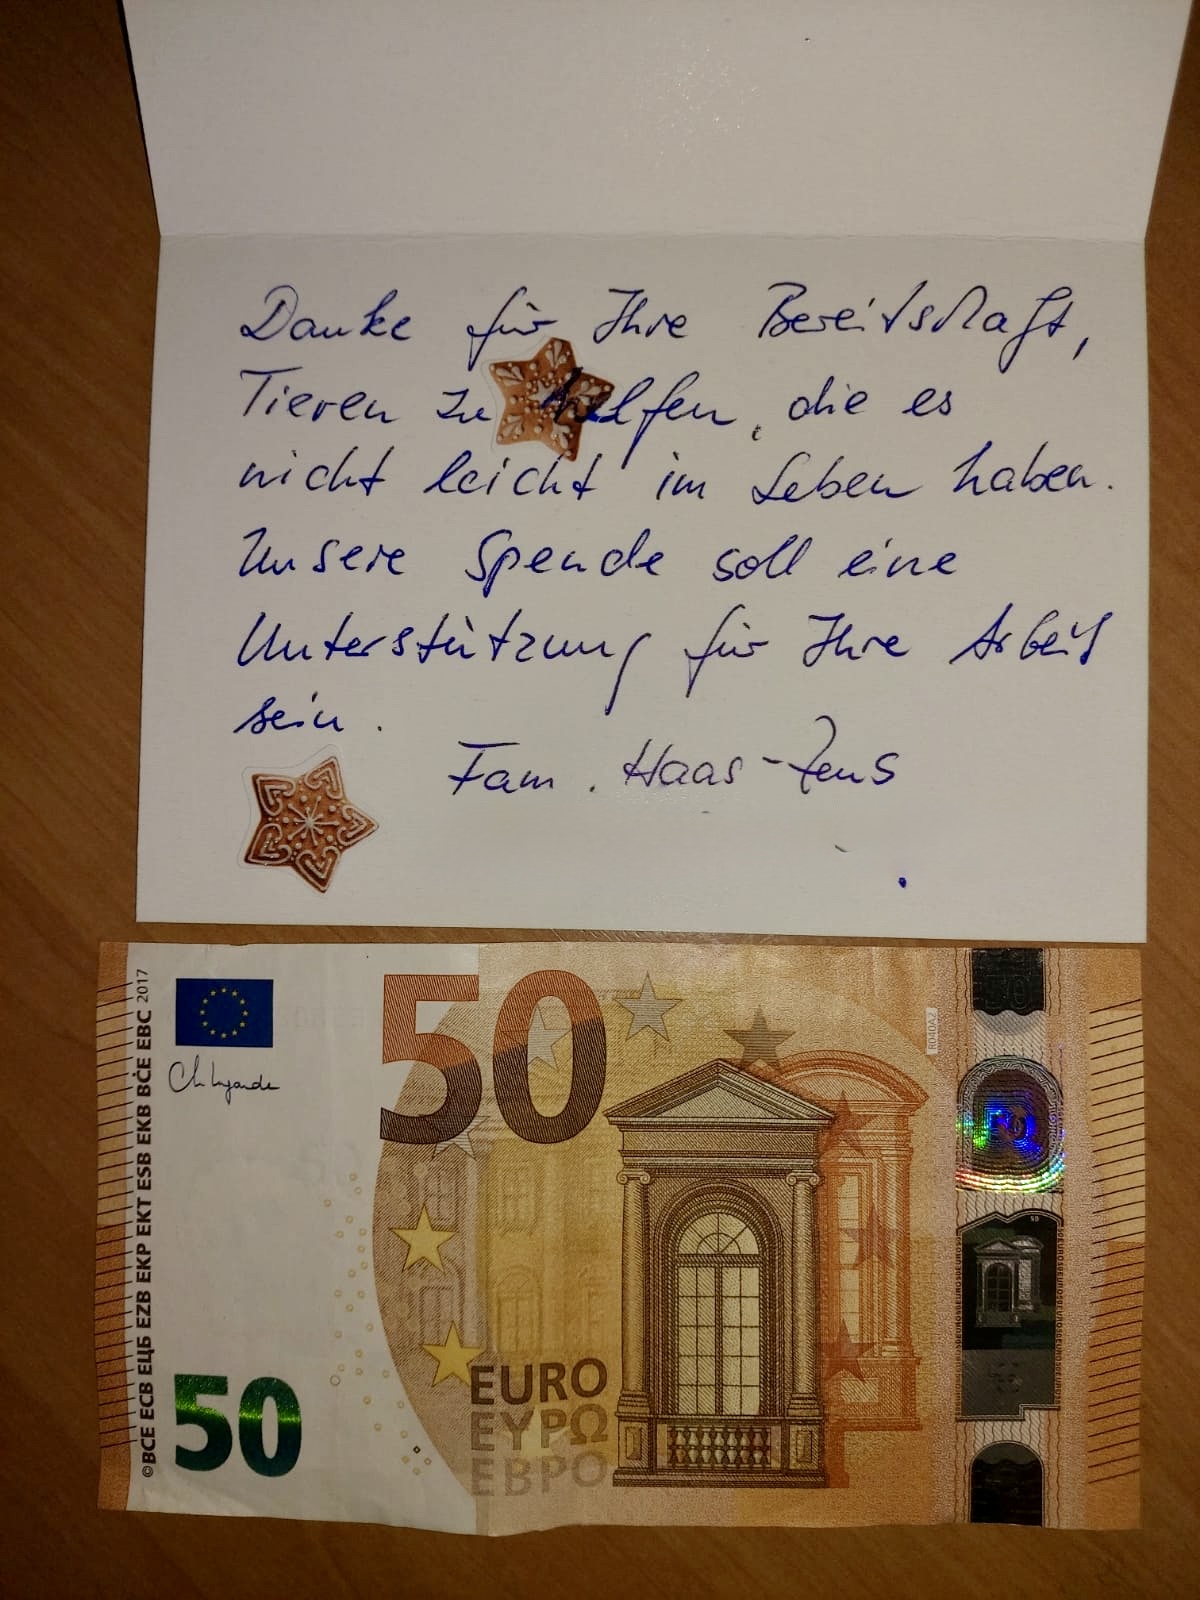 Danke für Ihre Bereitschaft,
Tieren zu helfen, die es
nicht leicht im Leben haben.
Unsere Spende soll eine
Unterstützung für Ihre Arbeit
sein.
Fam. Haas-
©BCE ECB ЕЦБ EZB EKP EKT ESB EKB BĊE EBC 2017
50
R040A2
50
EURO
ΕΥΡΩ
ЕВРО
50